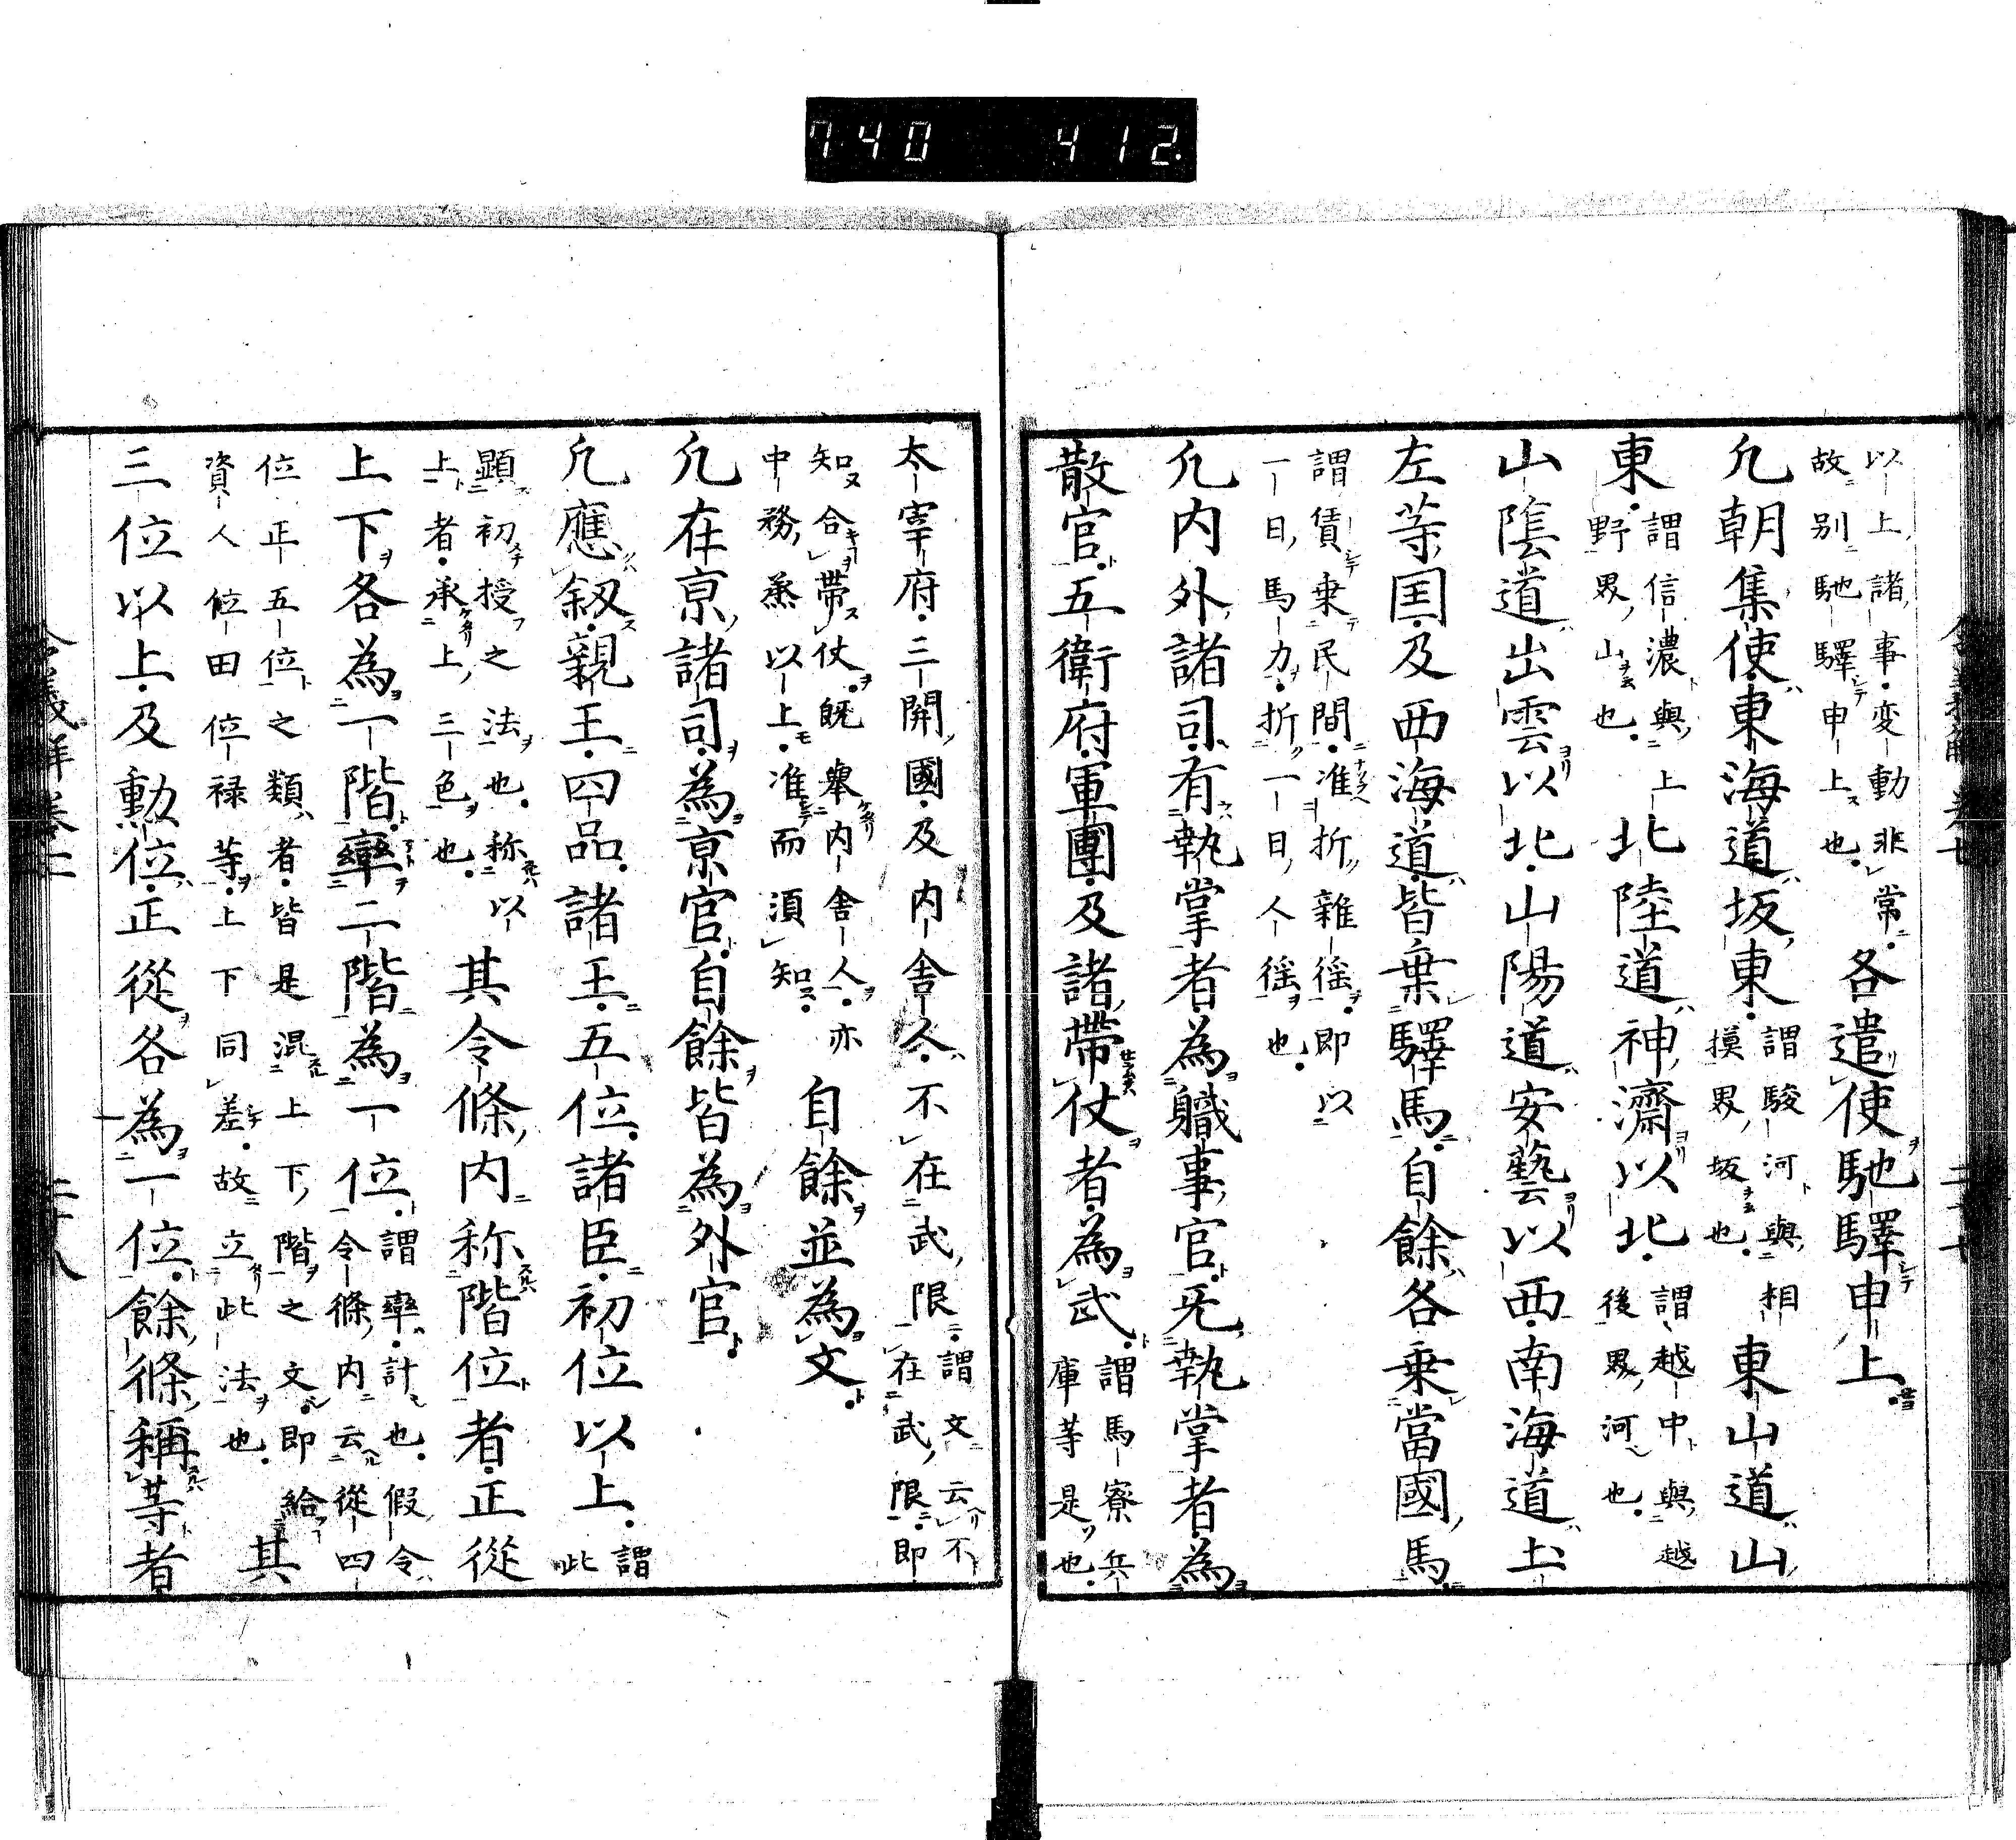 740 412
以上諸事変動非常
故別馳驛申上也 各遣使馳驛申上
凢朝集使東海道坂東 謂駿河與相
摸界坂也 東山道山
東 謂信濃與上
野界山也 北陸道神濟以北 謂越中與越
後界河也
山陰道出雲以北山陽道安藝以西南海道土
左等国及西海道皆乗驛馬自餘各乗當國馬
謂賃乗民間准折雜徭即以
一日馬力折一日人徭也
凢内外諸司有執掌者為軄事官旡執掌者為
散官五衛府軍團及諸帶仗者為武 謂馬寮兵
庫等是也
太宰府三関國及内舎人不在武限 謂文云不
在武限即
知合帶仗既舉内舎人亦
中務兼以上准而須知 自餘並為文
凢在京諸司為京官自餘皆為外官
凢應叙親王四品諸王五位諸臣初位以上 謂
此
顕初授之法也称以
上者承上三色也 其令條内称階位者正從
上下各為一階率二階為一位 謂率計也假令
令條内云從四
位正五位之類者皆是混上下階之文即給
資人位田位禄等上下同差故立此法也 其
三位以上及勳位正從各為一位餘條稱等者